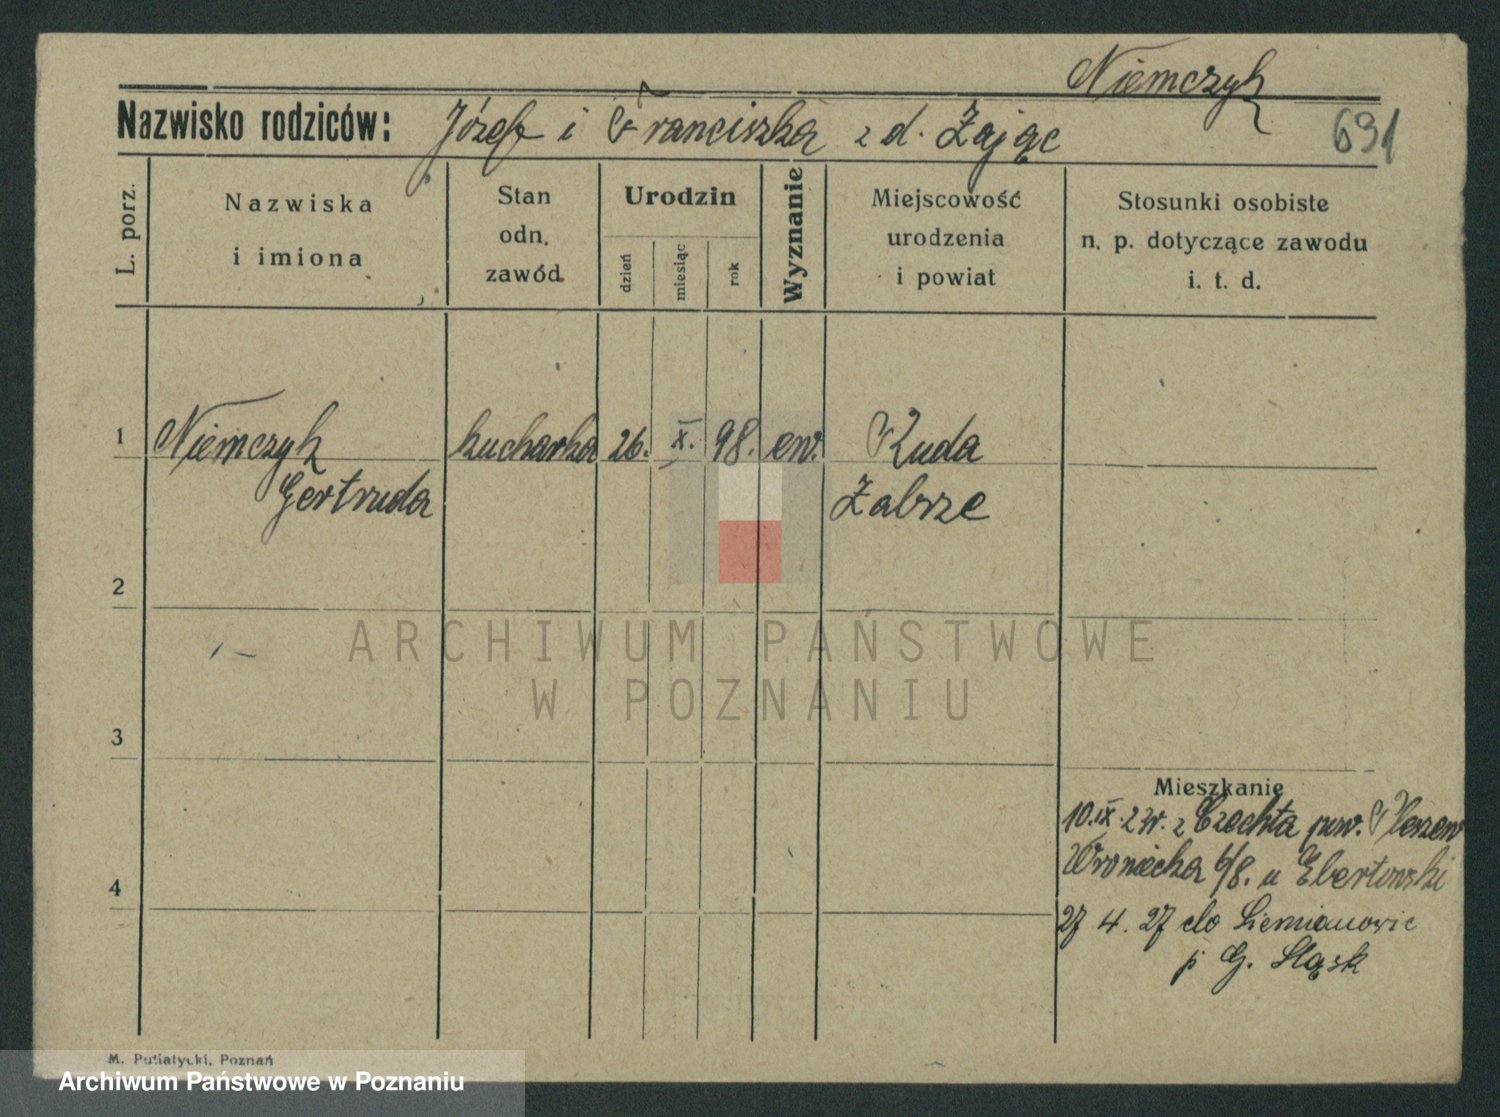 Niemczyk
Nazwisko rodziców: Józef i Franciszka z d. Zając
691
L. porz.
Nazwiska
i imiona
Stan
odn.
zawód
Urodzin
dzień
miesiąc
rok
Wyznanie
Miejscowość
urodzenia
i powiat
Stosunki osobiste
n. p. dotyczące zawodu
i. t. d.
1 Niemczyk kucharka 26. X. 98. ew. Ruda
Gertruda Zabrze
2
ARCHIWUM PAŃSTWOWE
W POZNANIU
3
Mieszkanie
10.IX.23r. z Czechta pow.
Wroniecka 6/8. u Ebertowski
4
27 4. 27 do Siemianowic
p G. Śląsk
M. Putiatycki, Poznań
Archiwum Państwowe w Poznaniu